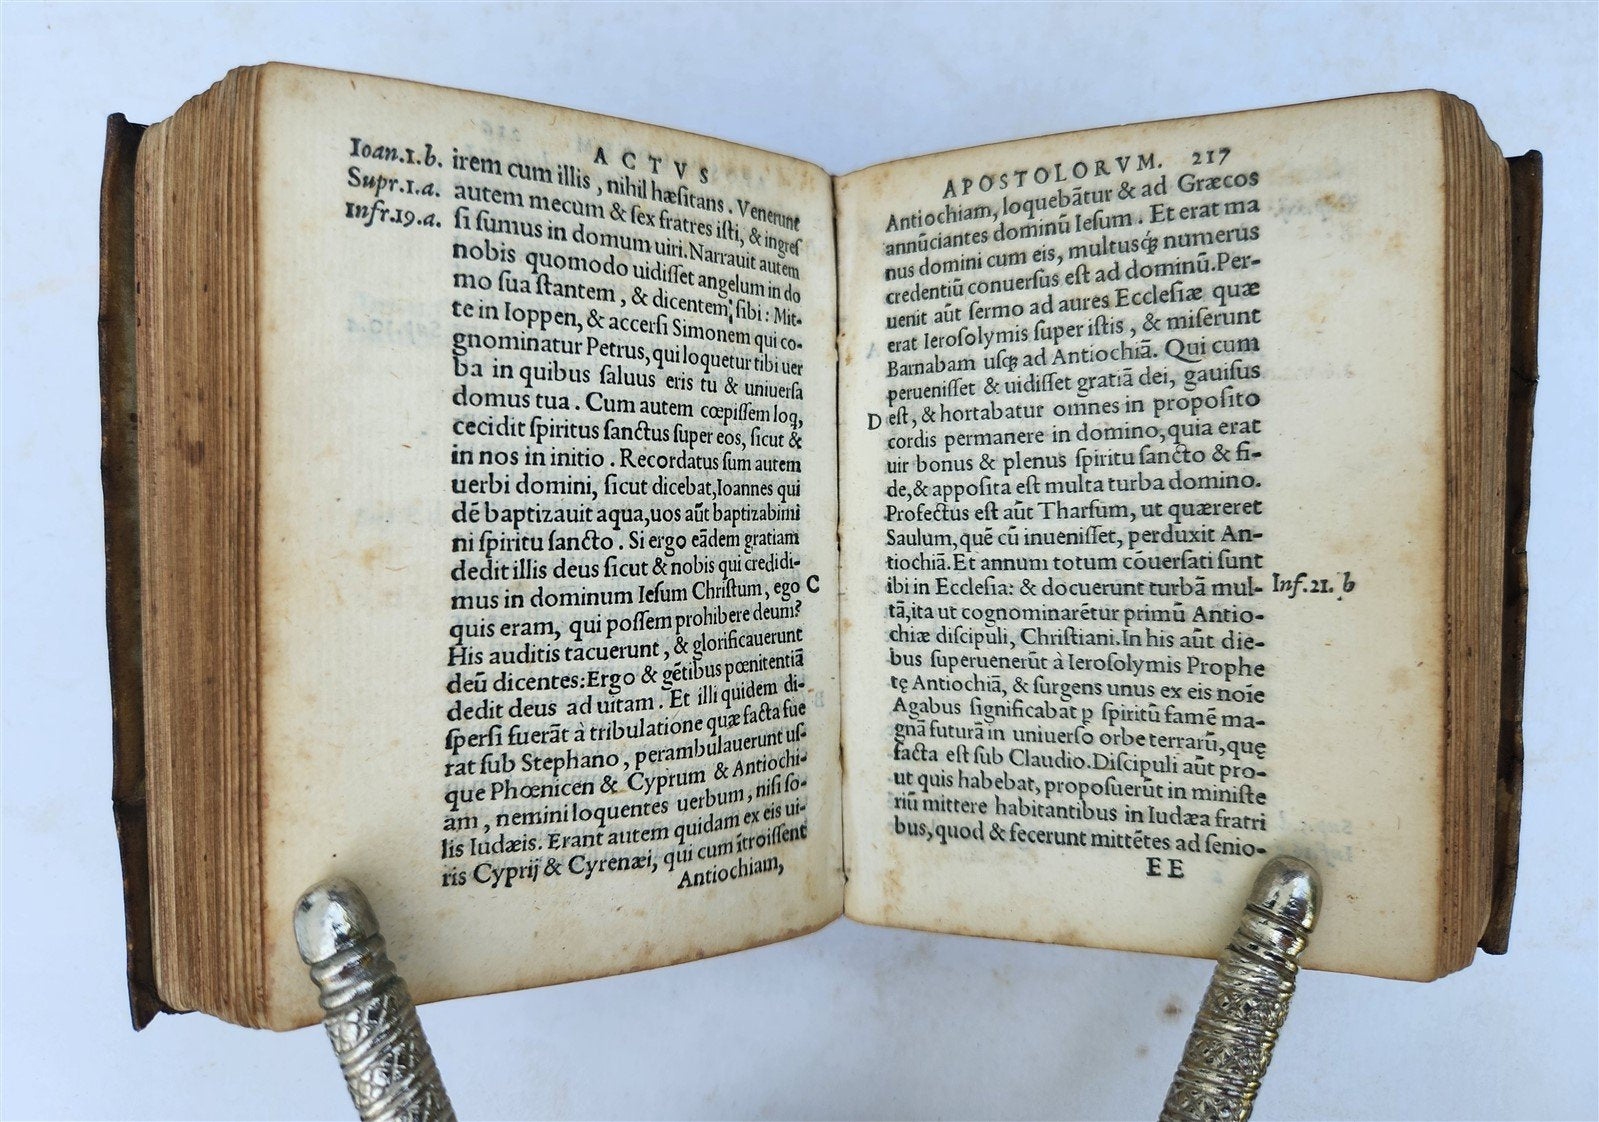 ACTVS
Ioan.1.b.
Supr.1.a.
Infr.19.a.
irem cum illis, nihil hæsitans. Venerunt
autem mecum & sex fratres isti, & ingres
si sumus in domum uiri. Narrauit autem
nobis quomodo uidisset angelum in do
mo sua stantem, & dicentem sibi: Mit-
te in Ioppen, & accersi Simonem qui co-
gnominatur Petrus, qui loquetur tibi uer
ba in quibus saluus eris tu & uniuersa
domus tua. Cum autem cœpissem loq,
cecidit spiritus sanctus super eos, sicut &
in nos in initio. Recordatus sum autem
uerbi domini, sicut dicebat, Ioannes qui
dē baptizauit aqua, uos aūt baptizabimi
ni spiritu sancto. Si ergo eādem gratiam
dedit illis deus sicut & nobis qui credidi-
mus in dominum Iesum Christum, ego
C
quis eram, qui possem prohibere deum?
His auditis tacuerunt, & glorificauerunt
deū dicentes: Ergo & gētibus pœnitentiā
dedit deus ad uitam. Et illi quidem di-
spersi fuerāt à tribulatione quæ facta fue
rat sub Stephano, perambulauerunt us-
que Phœnicen & Cyprum & Antiochi-
am, nemini loquentes uerbum, nisi so-
lis Iudæis. Erant autem quidam ex eis ui-
ris Cyprij & Cyrenæi, qui cum ītroissent
Antiochiam,
APOSTOLORVM. 217
Antiochiam, loquebātur & ad Græcos
annūciantes dominū Iesum. Et erat ma
nus domini cum eis, multusq; numerus
credentiū conuersus est ad dominū. Per-
uenit aūt sermo ad aures Ecclesiæ quæ
erat Ierosolymis super istis, & miserunt
Barnabam usq; ad Antiochiā. Qui cum
peruenisset & uidisset gratiā dei, gauisus
D est, & hortabatur omnes in proposito
cordis permanere in domino, quia erat
uir bonus & plenus spiritu sancto & fi-
de, & apposita est multa turba domino.
Profectus est aūt Tharsum, ut quæreret
Saulum, quē cū inuenisset, perduxit An-
tiochiā. Et annum totum cōuersati sunt
ibi in Ecclesia: & docuerunt turbā mul-
Inf.21.b
tā, ita ut cognominarētur primū Antio-
chiæ discipuli, Christiani. In his aūt die-
bus superuenerūt à Ierosolymis Prophe
tę Antiochiā, & surgens unus ex eis noīe
Agabus significabat ꝑ spiritū famē ma-
gnā futurā in uniuerso orbe terrarū, quę
facta est sub Claudio. Discipuli aūt pro-
ut quis habebat, proposuerūt in ministe
riū mittere habitantibus in Iudæa fratri
bus, quod & fecerunt mittētes ad senio-
EE